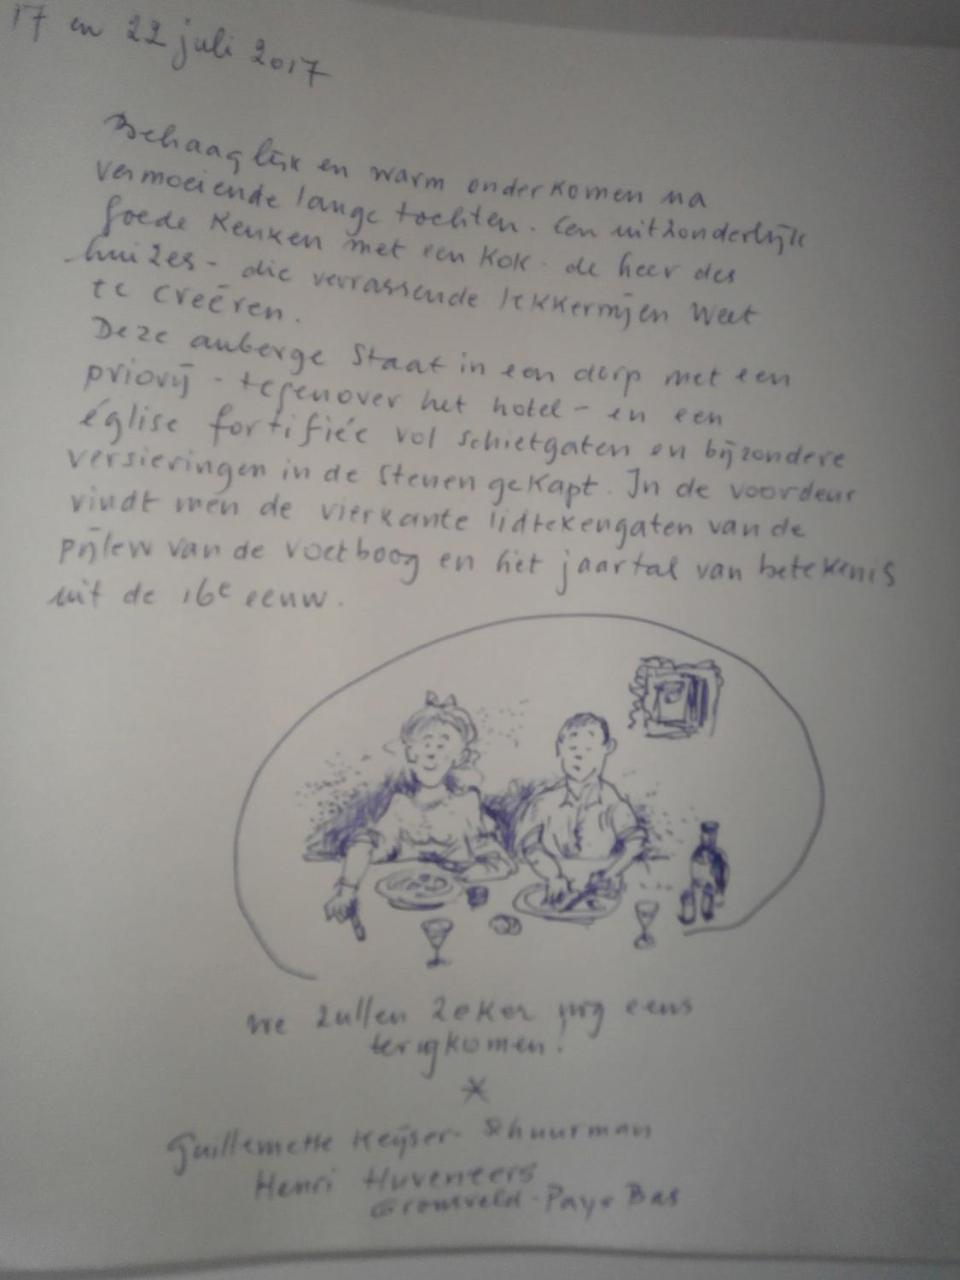 17 en 22 juli 2017
Behaaglijk en warm onderkomen na
vermoeiende lange tochten. Een uitzonderlijk
goede keuken met een kok - de heer des
huizes - die verrassende lekkernijen weet
te creëren.
Deze auberge staat in een dorp met een
priorij - tegenover het hotel - en een
église fortifiée vol schietgaten en bijzondere
versieringen in de stenen gekapt. In de voordeur
vindt men de vierkante lidtekengaten van de
pijlen van de voetboog en het jaartal van betekenis
uit de 16e eeuw.
We zullen zeker nog eens
terugkomen!
Guillemette Keijser-Schuurman
Henri Huveneers
Gronsveld - Pays Bas